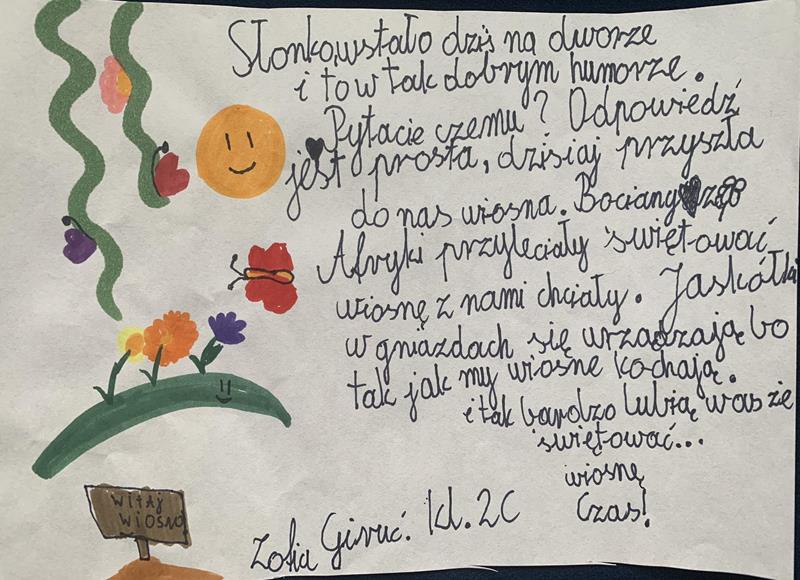 Słonko wstało dziś na dworze
i to w tak dobrym humorze.
Pytacie czemu? Odpowiedź
jest prosta, dzisiaj przyszła
do nas wiosna. Bociany z
Afryki przyleciały świętować
wiosnę z nami chciały. Jaskółki
w gniazdach się urządzają bo
tak jak my wiosne kochają.
i tak bardzo lubią was że
świętować...
wiosnę
Czas!
WITAJ
WIOSNO
Zofia kl. 2C